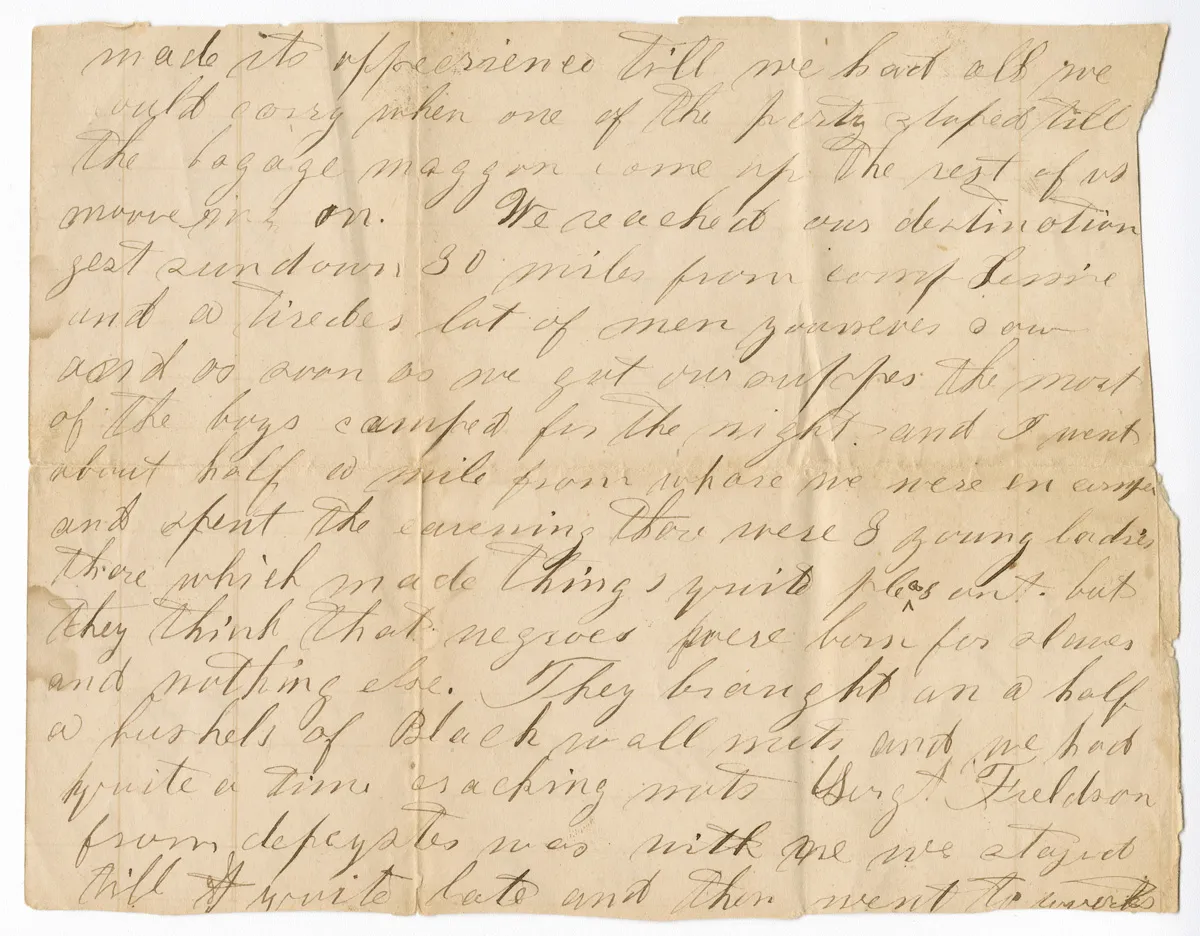 made its appeerience till we had all we
ould carry when one of the perty staped till
the bagage waggon come up the rest of us
mooveing on. We reached our destination
gest sundown 30 miles from camp
and a tiredes lot of men younever saw
and as soon as we got our supper the most
of the boys camped for the night and I went
about half a mile from whare we were in camp
and spent the eavening thare were 3 young ladies
thare which made things quite pleasant. but
they think that negroes were born for slaves
and nothing else. They braught an a half
a bushels of Black wall nuts and we had
quite a time cracking nuts Sergt. Fieldson
from depeyster was with me we stayed
till quite late and then went to